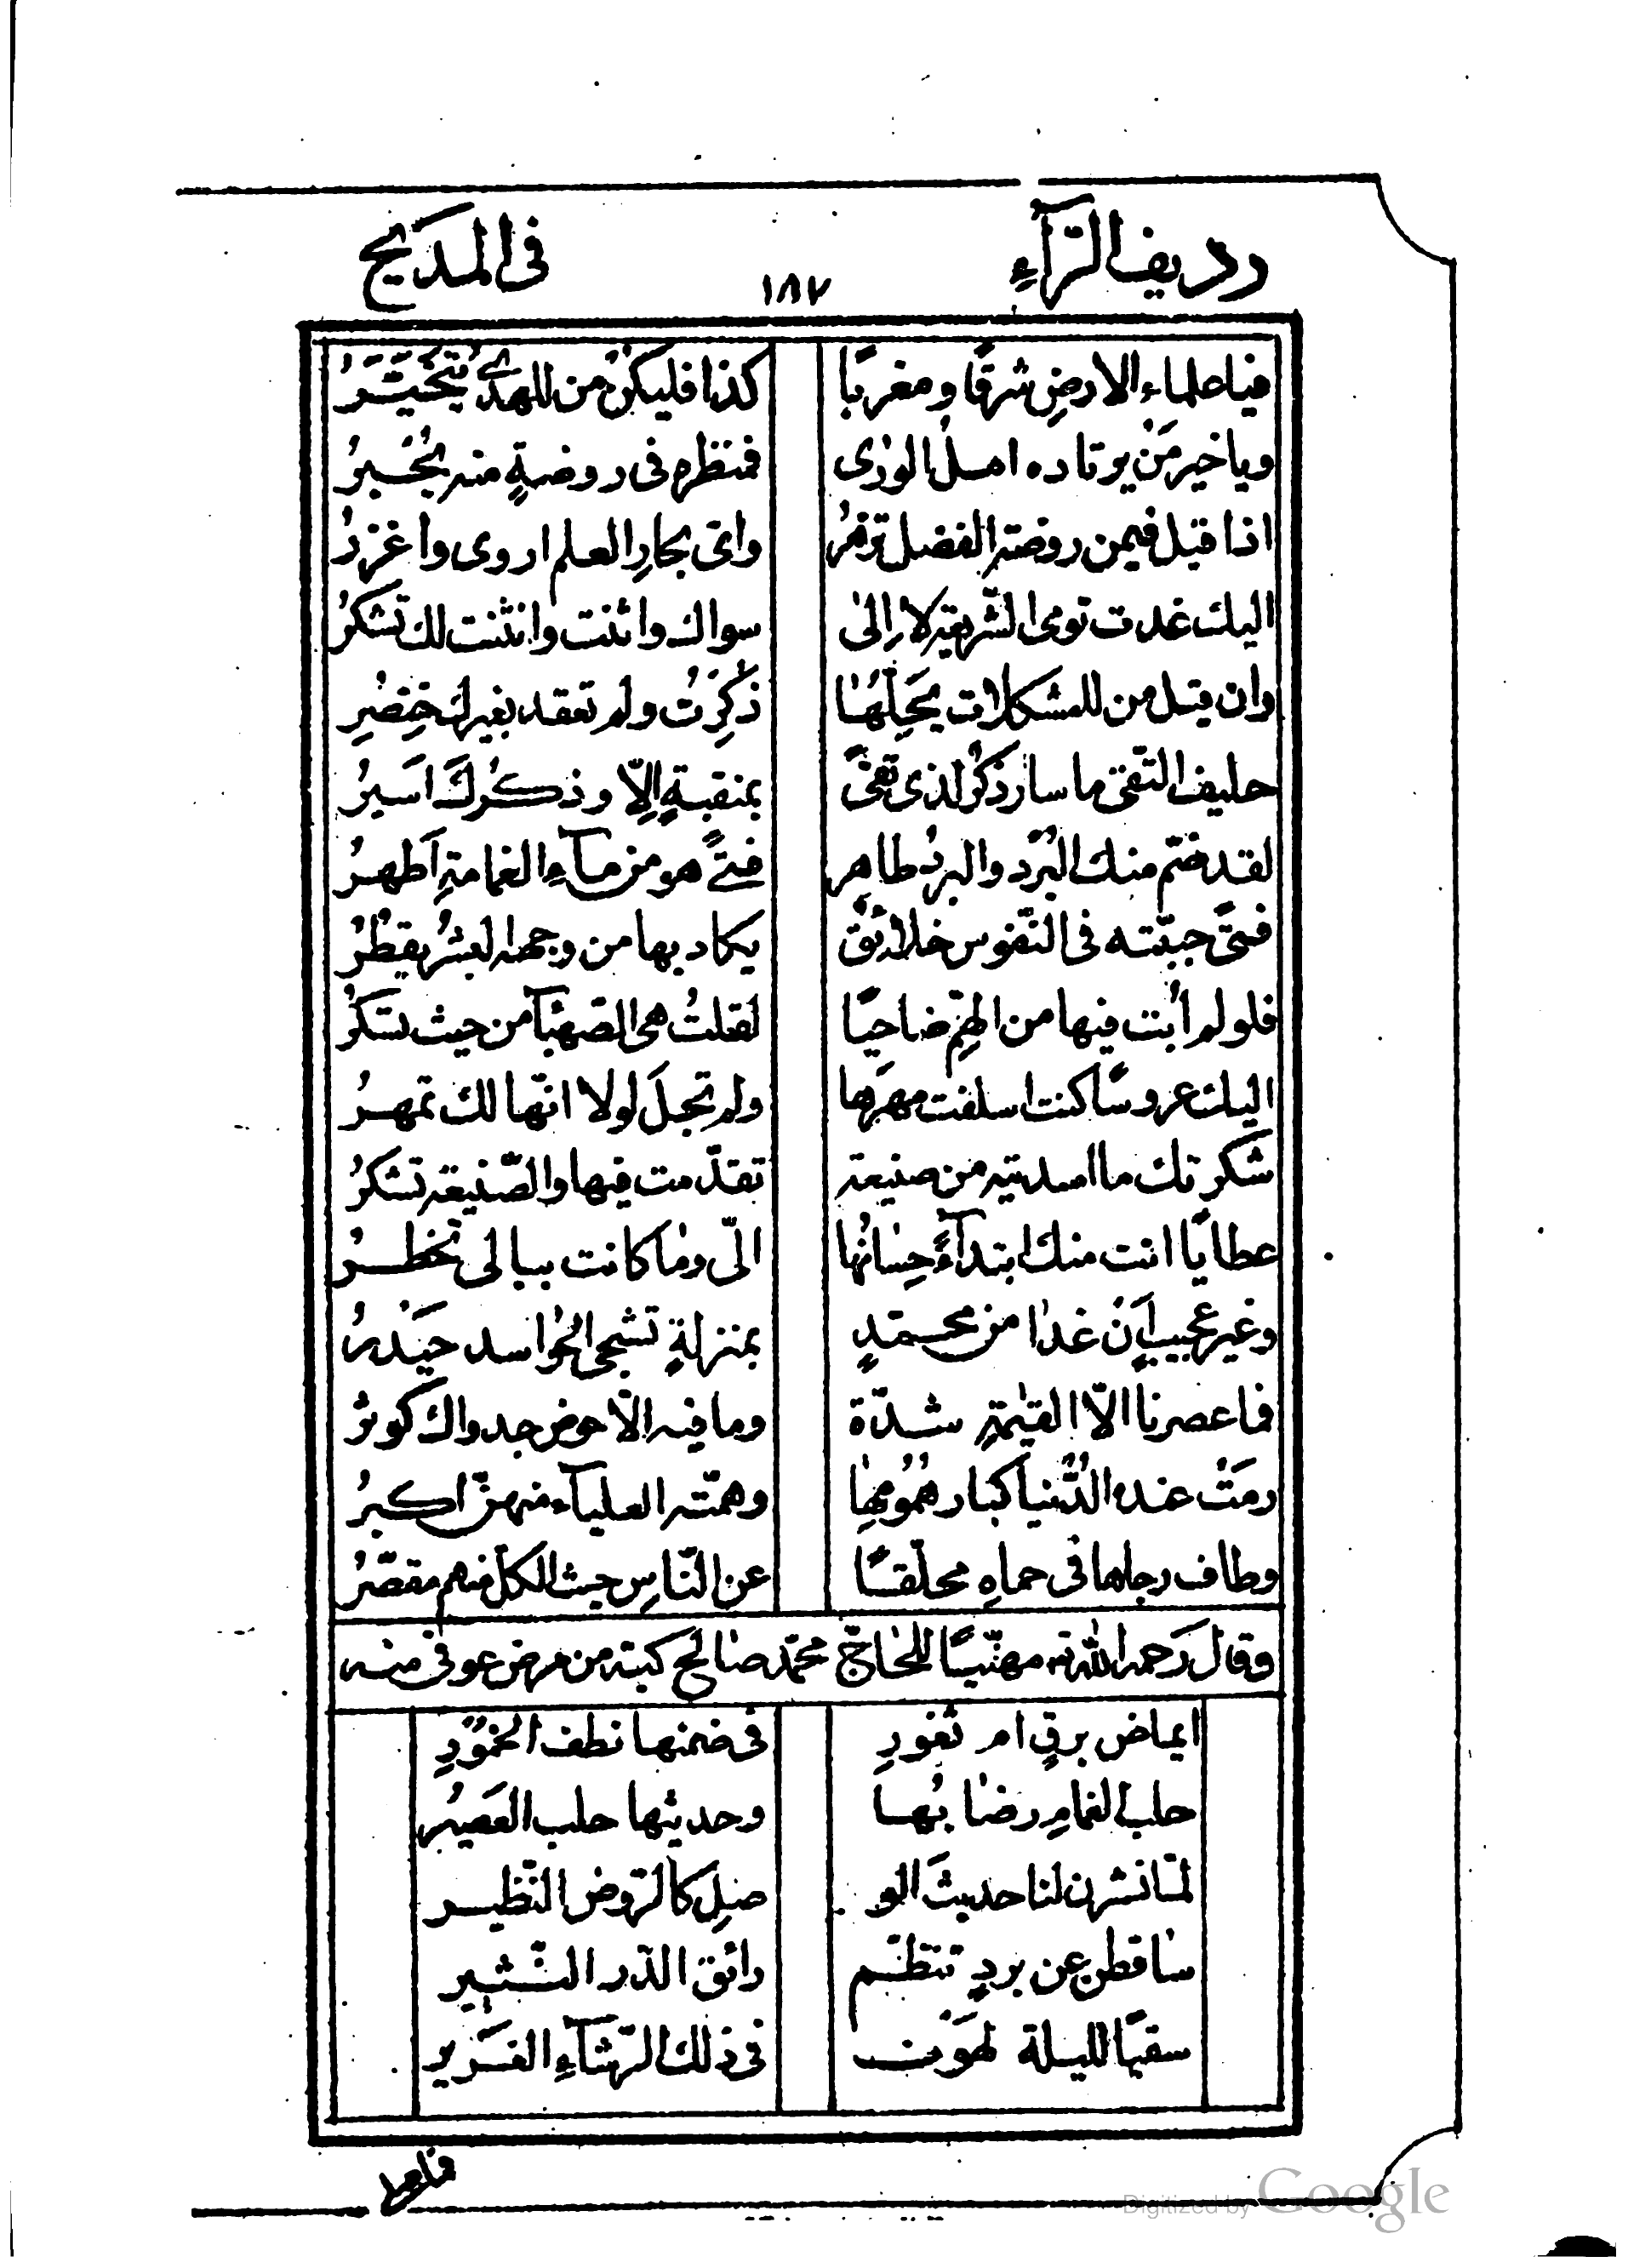 رديف الرّآءِ ١٨٧ فى المديح
فيا علماء الارضِ شرقًا ومغربًا كذا فليكن من للهدىٰ يتخيّرُ
ويا خير مَنْ يرتاده اهل الورٰى فمنظره فى روضةٍ منه يحبرُ
اذا قيل فيمن روضة الفضل تزهرُ واىّ بحارِ العلم اروى واغزرُ
اليك غدت تومى الشّريعة لا إلى سواك واثنت وانثنت لك تشكرُ
وان قيل من للمشكلات يحلّهٰا ذُكِرَت ولم تعقد بغيرك خنصرُ
حليف التّقى ما سار ذكرُ لذى تقىً بمنقبةٍ اِلّا وذكرك اسيرُ
لقد ضمّ منك البُرد والبرد طاهر فتىً هو من مآءِ الغمامةِ اَطهرُ
فتىً حبّبته فى النّفوس خلائقٌ يكاد بها من وجهه البشر يقطرُ
فلو لم أبت فيها من الهمِّ ضاحيًا لقلتُ هى الصّهبآ من حيث تسكرُ
اليك عروسًا كنت اسلفت مهرها ولم تجلَ لولا انّها لك تمهرُ
شكرتك ما اسديته من صنيعة تقدّمت فيها والصّنيعة تشكرُ
عطايًا اتت منك ابتدآءً حِسانُها الىّ وما كانت ببالى تخطرُ
وغير عجيبٍ اَنْ غدا من محمّدٍ بمنزلةٍ تشجى الحواسد حَيْدرُ
فما عصرنا الّا القيٰمةِ شدّة وما فيه الّا حوض جدواك كوثرُ
رمَتْ عنده الدُّنيا كبار هُمُومِها وهمّته العليآء منهنّ اكبرُ
وطاف رجاها فى حماهِ محلّقًا عن النّاسِ حيث الكلّ منهم مقصّرُ
وقال رَحمه اللّٰه مهنّيًا للحٰاجّ محمّد صٰالح كبّة من مرض عوفى منه
ايماض برقٍ ام ثغورِ فى ضمنها نطف الخمُورِ
حلب الغمامِ رضٰا بُها وحديثها حلب العَصيرِ
لمّا نشرن لنا حديث الو صلِ كالرّوض النّظير
سٰاقطن عن بردٍ تنظّم رائق الدّر النّثير
سقيًا لليلة لهوِنٰا فى ذلك الرّشآءِ الغَرير